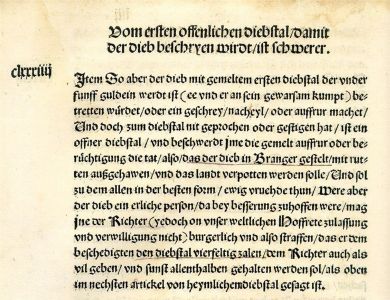 Vom ersten offenlichen diebstal/damit
der dieb beschryen wirdt/ist schwerer.
clxxxiiij
Item So aber der dieb mit gemeltem ersten diebstal der vnder
funff guldein werdt ist (ee vnd er an sein gewarsam kumpt) be-
tretten würdet/oder ein geschrey/nacheyl/oder auffrur machet/
Vnd doch zum diebstal nit geprochen oder gestigen hat/ist ein
offner diebstal/vnd beschwerdt jme die gemelt auffrur oder be-
rüchtigung die tat/also/das der dieb in Branger gestelt/mit rut-
ten außgehawen/vnd das landt verpotten werden solle/Vnd sol
zu dem allen in der besten form/ewig vruehde thun/Were aber
der dieb ein erliche person/da bey besserung zuhoffen were/mag
jne der Richter (yedoch on vnser weltlichen Hoffrete zulassung
vnd verwilligung nicht) burgerlich vnd also straffen/das er dem
beschedigten den diebstal vierfeltig zalen/dem Richter auch als
vil geben/vnd sunst allenthalben gehalten werden sol/als oben
im nechsten artickel von heymlichendiebstal gesagt ist.